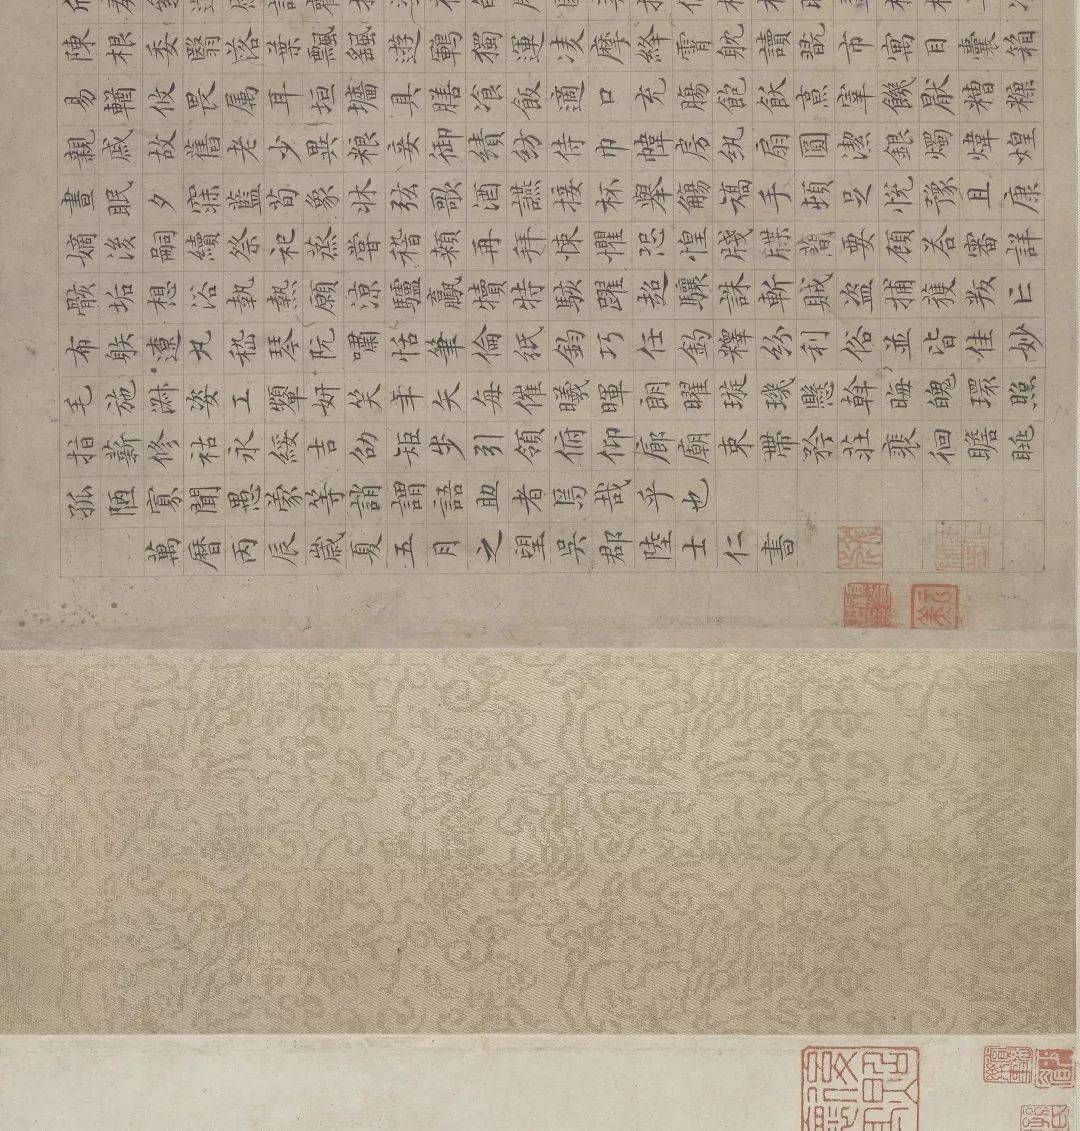 陳根委翳落葉飄颻遊鵾獨運凌摩絳霄耽讀翫市寓目囊箱
易輶攸畏属耳垣墻具膳飡飯適口充腸飽飫烹宰饑厭糟糠
親戚故舊老少異粮妾御績紡侍巾幃房紈扇圓潔銀燭煒煌
晝眠夕寐藍荀象牀弦歌酒讌接杯舉觴矯手頓足悅豫且康
嫡後嗣續祭祀蒸嘗稽顙再拜悚懼恐惶牋牒簡要顧答審詳
骸垢想浴執熱願凉驢驘犢特駭躍超驤誅斬賊盗捕獲叛亡
布射遼丸嵇琴阮嘯恬筆倫紙鈞巧任釣釋紛利俗並皆佳妙
毛施淑姿工顰妍笑年矢每催曦暉朗曜璇璣懸斡晦魄環照
指薪修祜永綏吉劭矩步引領俯仰廊廟束帶矜莊裴徊瞻眺
孤陋寡聞愚蒙等誚謂語助者焉哉乎也
萬曆丙辰歲夏五月之望吳郡陸士仁書